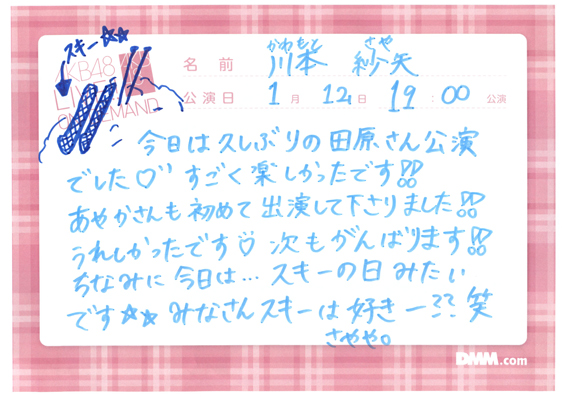 スキー☆☆
AKB48
LIVE!!
ON DEMAND
かわもと さや
名前 川本 紗矢
公演日 1月 12日 19:00 公演
今日は久しぶりの田原さん公演
でした♡" すごく楽しかったです!!
あやかさんも初めて出演して下さりました!!
うれしかったです♡ 次もがんばります!!
ちなみに今日は… スキーの日みたい
です☆☆ みなさんスキーは好きー?? 笑
さやや。
DMM.com